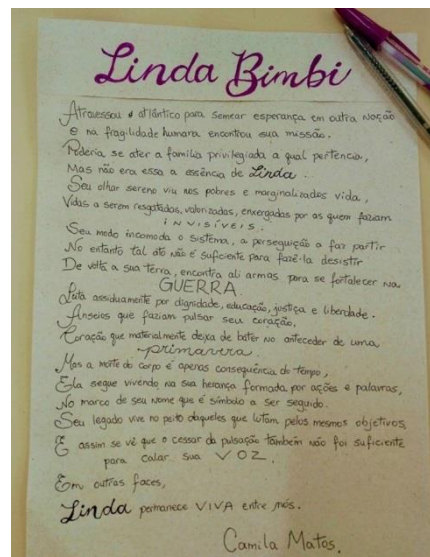 Linda Bimbi
Atravessou o atlântico para semear esperança em outra nação
e na fragilidade humana encontrou sua missão.
Poderia se ater a família privilegiada a qual pertencia,
Mas não era essa a essência de Linda.
Seu olhar sereno viu nos pobres e marginalizados vida,
Vidas a serem resgatadas, valorizadas, enxergadas por as quem faziam
INVISÍVEIS.
Seu modo incomoda o sistema, a perseguição a faz partir
No entanto tal ato não é suficiente para fazê-la desistir
De volta a sua terra, encontra ali armas para se fortalecer na
GUERRA.
Luta assiduamente por dignidade, educação, justiça e liberdade.
Anseios que faziam pulsar seu coração.
Coração que materialmente deixa de bater no anteceder de uma
primavera.
Mas a morte do corpo é apenas consequência do tempo,
Ela segue vivendo na sua herança formada por ações e palavras,
No marco de seu nome que é símbolo a ser seguido.
Seu legado vive no peito daqueles que lutam pelos mesmos objetivos
E assim se vê que o cessar da pulsação também não foi suficiente
para calar sua VOZ.
Em outras faces,
Linda permanece VIVA entre nós.
Camila Matos.